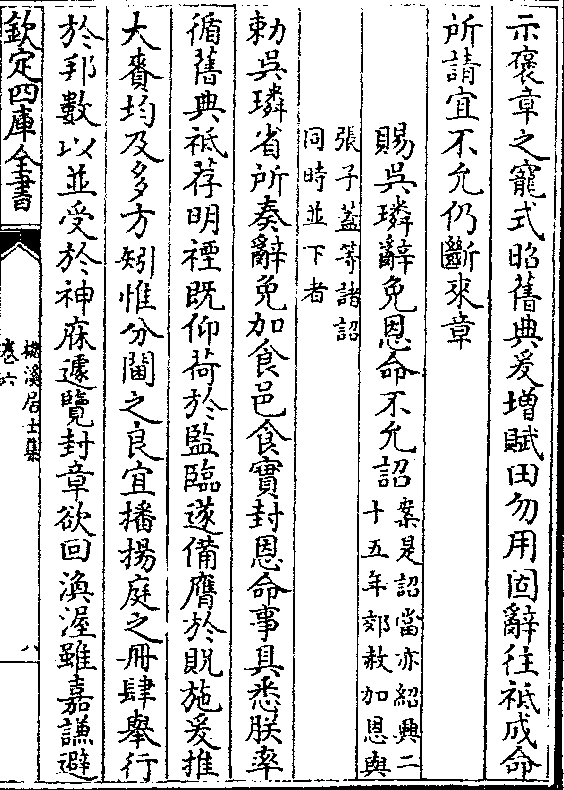 示褒章之寵式昭舊典爰增賦田勿用固辭往祗成命
所請宜不允仍斷來章
賜吳璘辭免恩命不允詔
案是詔當亦紹興二
十五年郊赦加恩與
張子蓋等諸詔
同時並下者
勅吳璘省所奏辭免加食邑食實封恩命事具悉朕率
循舊典祗荐明禋既仰荷於監臨遂備膺於貺施爰推
大賚均及多方矧惟分閫之良宜播揚庭之冊肆舉行
於邦數以並受於神庥遽覽封章欲回渙渥雖嘉謙避
欽定四庫全書
楳溪居士集
卷六
八